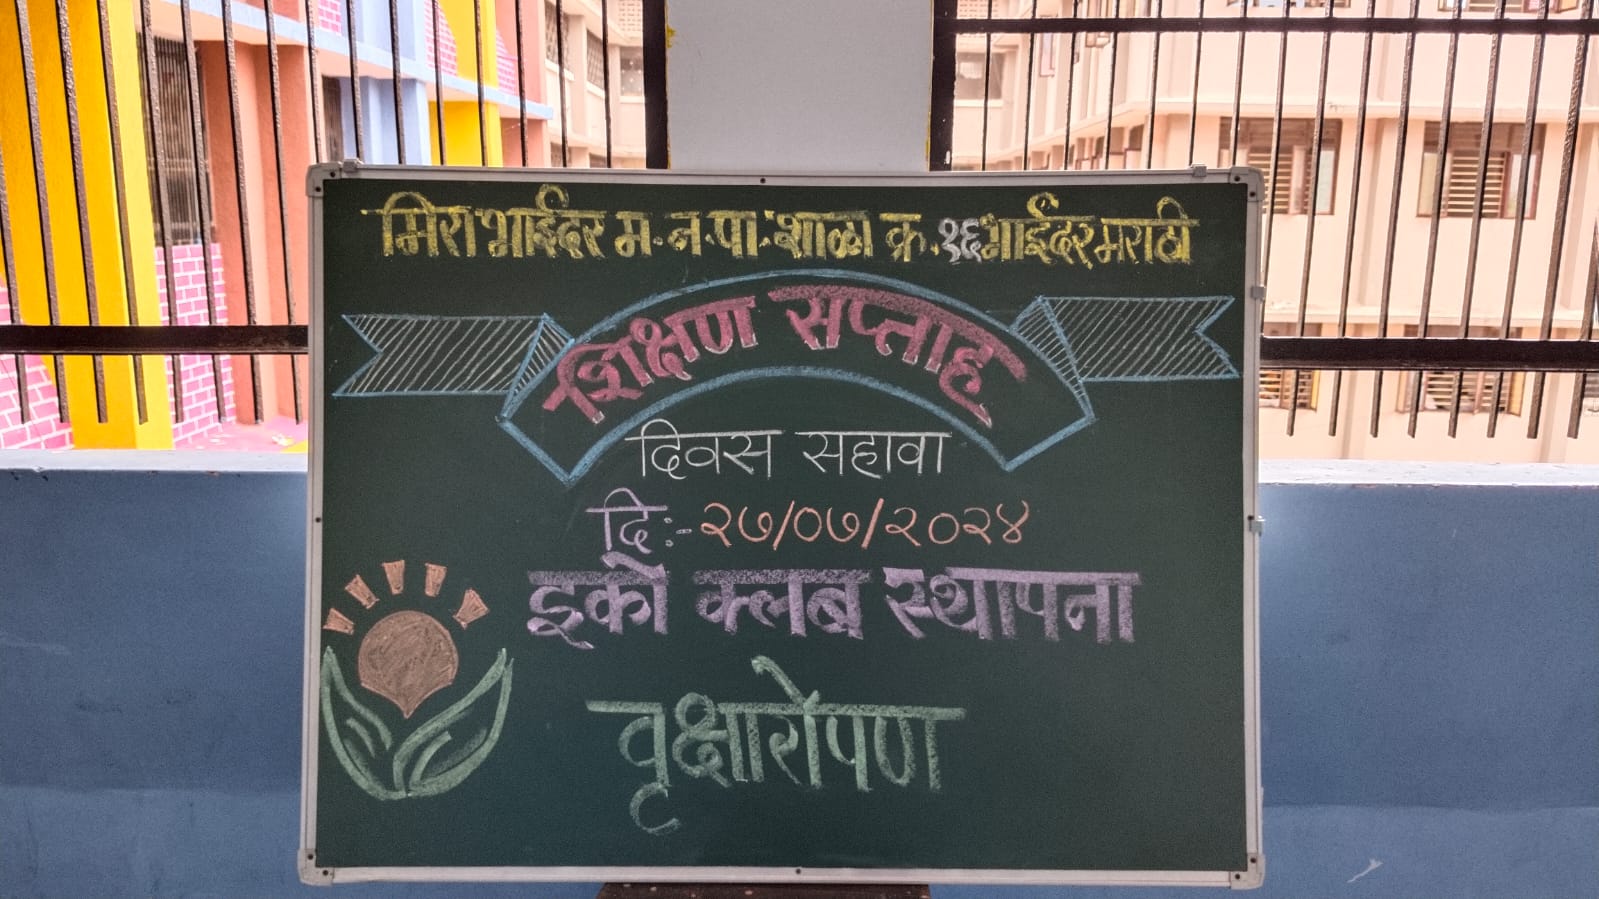 मिरा भाईंदर म.न.पा. शाळा क्र. १६ भाईंदर मराठी
शिक्षण सप्ताह
दिवस सहावा
दि:- २७/०७/२०२४
इको क्लब स्थापना
वृक्षारोपण